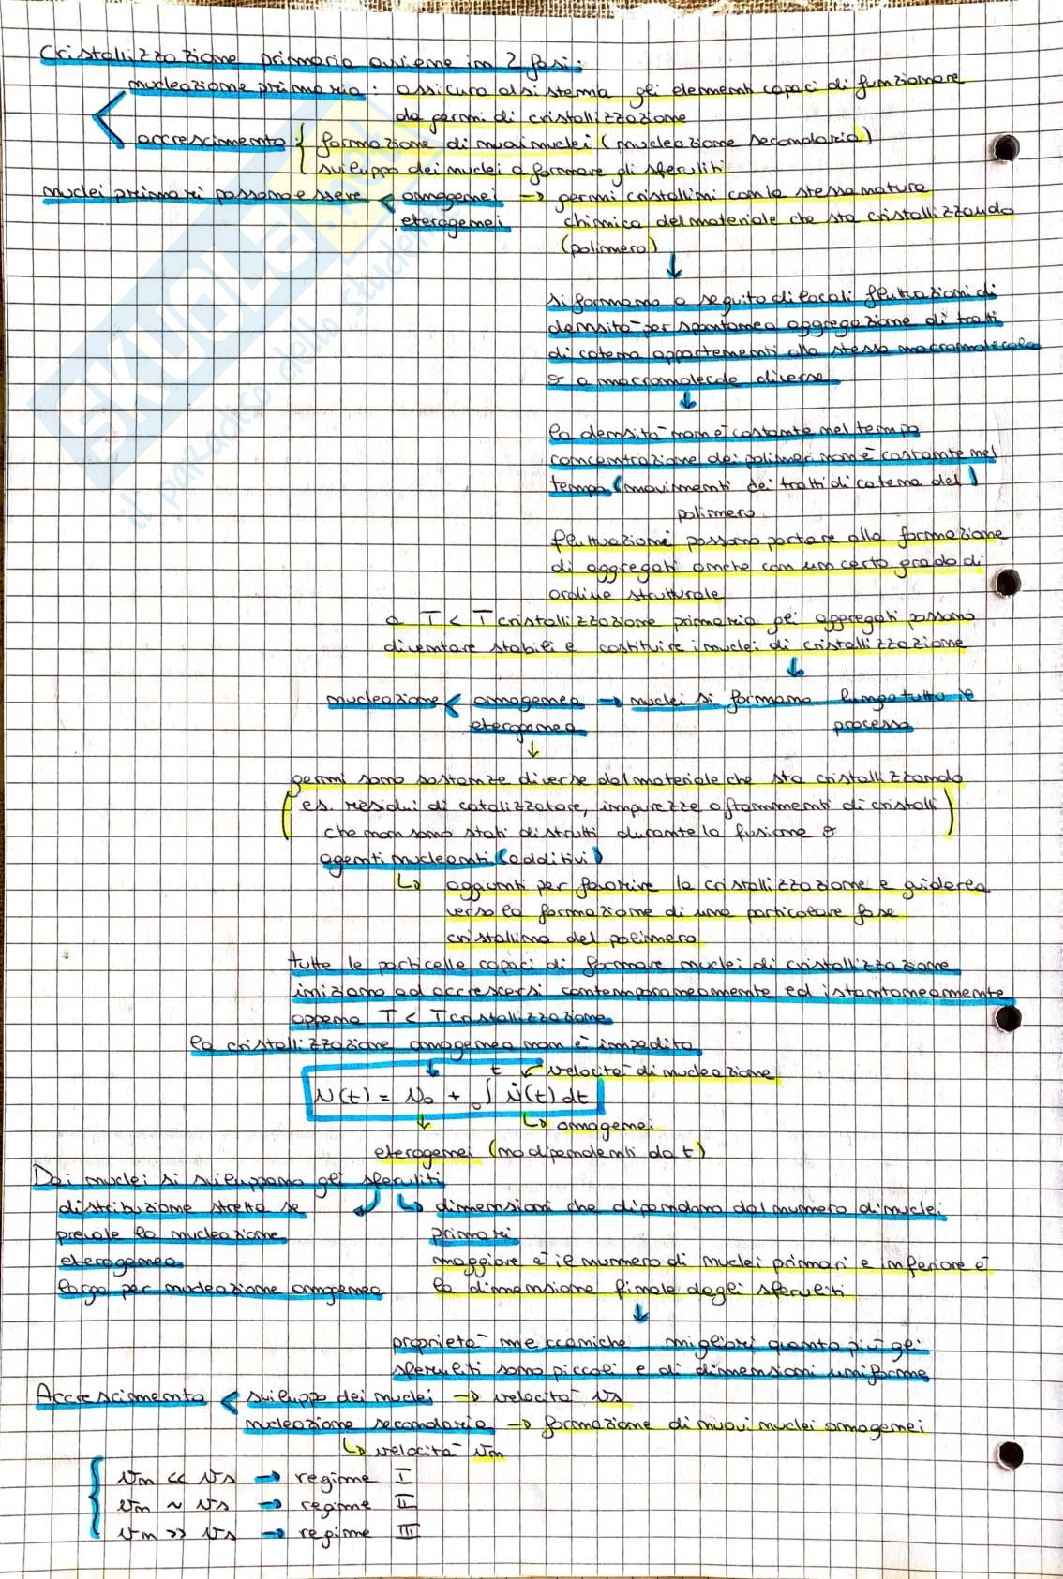 Cristallizzazione primaria avviene in 2 fasi:
nucleazione primaria: assicura al sistema gli elementi capaci di funzionare
da germi di cristallizzazione
accrescimento: formazione di nuovi nuclei (nucleazione secondaria)
sviluppo dei nuclei a formare gli sferuliti
nuclei primari possono essere < omogenei → germi cristallini con la stessa natura
eterogenei chimica del materiale che sta cristallizzando
(polimero)
si formano a seguito di locali fluttuazioni di
densità per spontanea aggregazione di tratti
di catena appartenenti alla stessa macromolecola
o a macromolecole diverse
la densità non è costante nel tempo
concentrazione dei polimeri non è costante nel
tempo (movimenti dei tratti di catena del)
polimero
fluttuazioni possono portare alla formazione
di aggregati anche con un certo grado di
ordine strutturale
a T < T cristallizzazione primaria gli aggregati possono
diventare stabili e costituire i nuclei di cristallizzazione
nucleazione < omogenea → nuclei si formano lungo tutto il
eterogenea processo
germi sono sostanze diverse dal materiale che sta cristallizzando
(es. residui di catalizzatore, impurezze o frammenti di cristalli
che non sono stati distrutti durante la fusione o)
agenti nucleanti (additivi)
↳ aggiunti per favorire la cristallizzazione e guidarla
verso la formazione di una particolare fase
cristallina del polimero
tutte le particelle capaci di formare nuclei di cristallizzazione
iniziano ad accrescersi contemporaneamente ed istantaneamente
appena T < T cristallizzazione
la cristallizzazione omogenea non è impedita
t velocità di nucleazione
N(t) = N₀ + ₀∫ Ṅ(t) dt
↳ omogenei
eterogenei (no dipendenti da t)
Dai nuclei si sviluppano gli sferuliti
distribuzione stretta se ↳ dimensioni che dipendono dal numero di nuclei
prevale la nucleazione primari
eterogenea maggiore è il numero di nuclei primari e inferiore è
larga per nucleazione omogenea la dimensione finale degli sferuliti
proprietà meccaniche migliori quanto più gli
sferuliti sono piccoli e di dimensioni uniforme
Accrescimento < sviluppo dei nuclei → velocità vs
nucleazione secondaria → formazione di nuovi nuclei omogenei
↳ velocità vn
vn << vs → regime I
vn ~ vs → regime II
vn >> vs → regime III